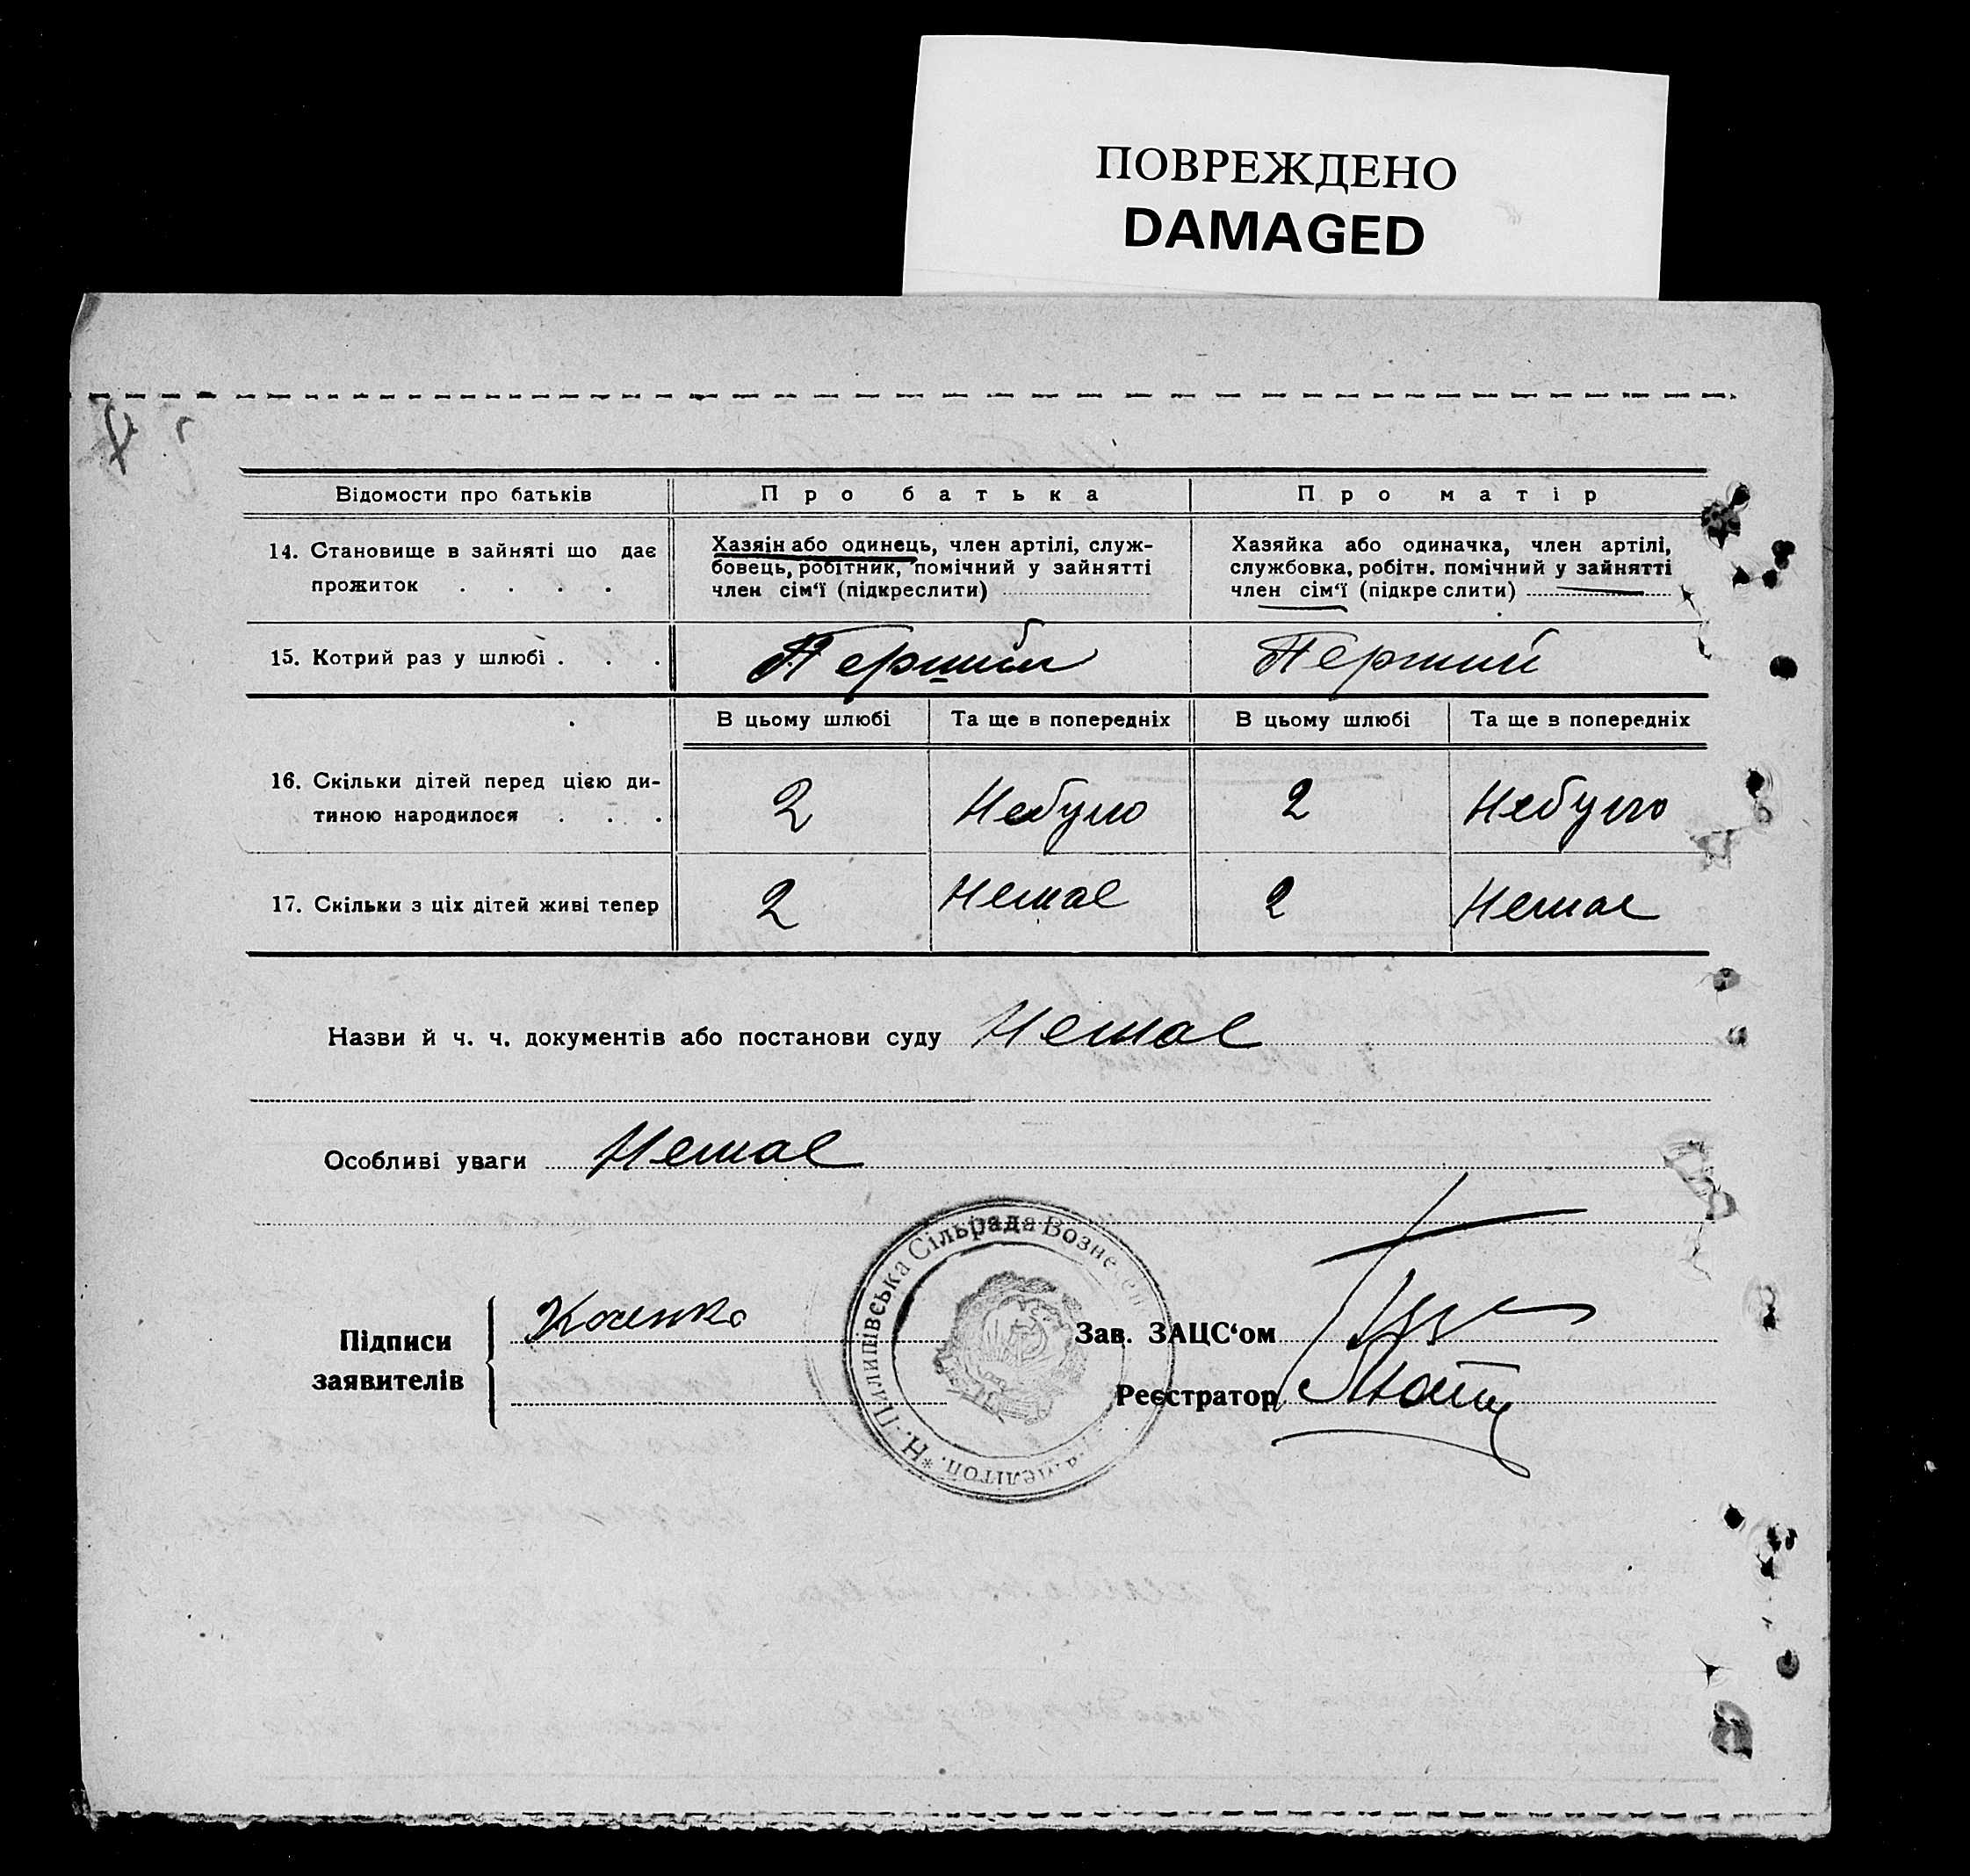 ПОВРЕЖДЕНО
DAMAGED
Відомости про батьків | Про батька | Про матір
14. Становище в зайняті що дає прожиток . . . .
Хазяін або одинець, член артілі, служ-
бовець, робітник, помічний у зайнятті
член сім‘ї (підкреслити)
Хазяйка або одиначка, член артілі,
службовка, робітн. помічний у зайнятті
член сім‘ї (підкреслити)
15. Котрий раз у шлюбі . . . | Перший | Перший
В цьому шлюбі | Та ще в попередніх | В цьому шлюбі | Та ще в попередніх
16. Скільки дітей перед цією ди-
тиною народилося . . . | 2 | Небуло | 2 | Небуло
17. Скільки з ціх дітей живі тепер | 2 | Немає | 2 | Немає
Назви й ч. ч. документів або постанови суду Немає
Особливі уваги Немає
Підписи
заявителів
Косенко
Н.-Пилипівська Сільрада Вознесен
Мелітоп.
Зав. ЗАЦС‘ом
Реєстратор